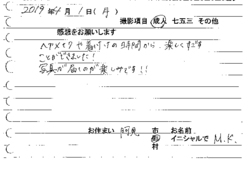 2019年9月1日(日)
撮影項目 成人 七五三 その他
感想をお願いします
ヘアメイクや着付けの時間から、楽しくすごす
ことができました!
写真が届くのが楽しみです!!
お住まい 阿見 市 町 村 お名前 イニシャルで M.K.